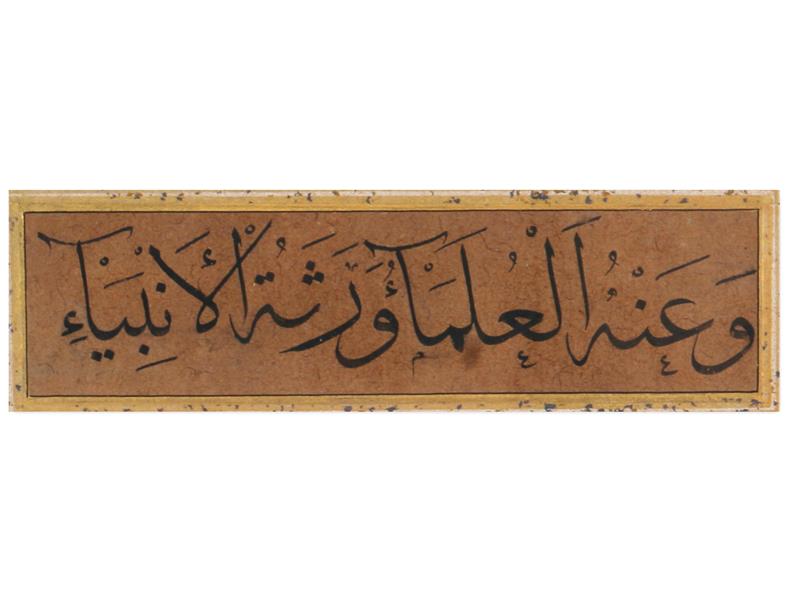 وَعَنْهُ اَلْعُلَمَآؤُ وَرَثَةُ الْأَنْبِيَآءِ